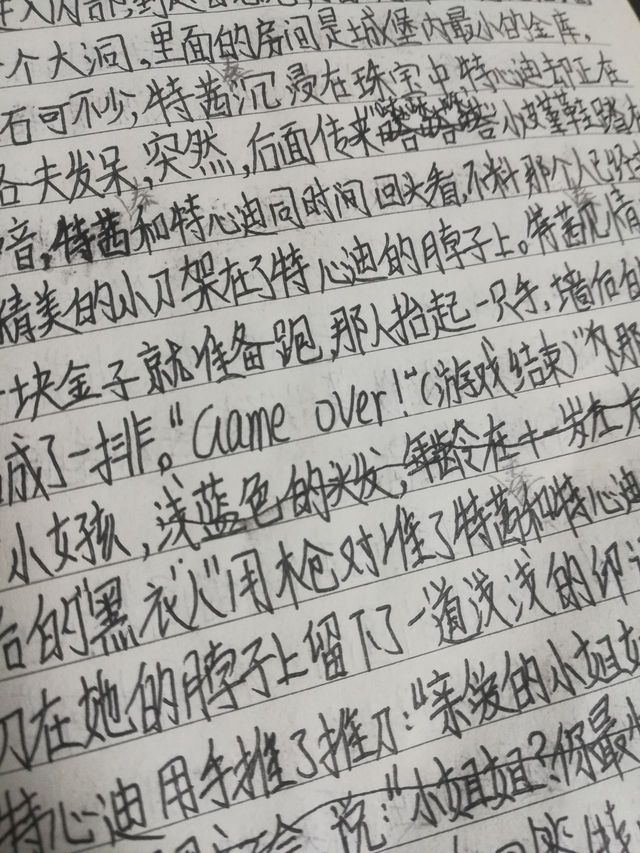 个大洞,里面的房间是城堡内最小的金库,
石可不少,特茜沉浸在珠宝中特心迪却正在
各夫发呆,突然,后面传来 小皮鞋踏
音,特茜和特心迪同时间回头看,不料那个人已经
精美的小刀架在了特心迪的脖子上。特茜见情
一块金子就准备跑,那人抬起一只手,墙后的
成了一排。“Game over!”(游戏结束)”
小女孩,浅蓝色的头发,年龄在十一岁左右
后的“黑衣人”用枪对准了特茜和特心迪
刀在她的脖子上留下了一道浅浅的印
特心迪用手推了推刀:“亲爱的小姐姐
说:“小姐姐?你最